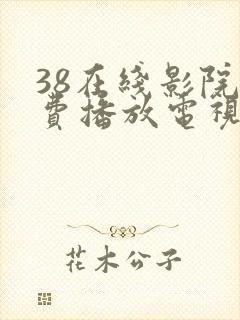 38在线影院
费播放电视
花木公子